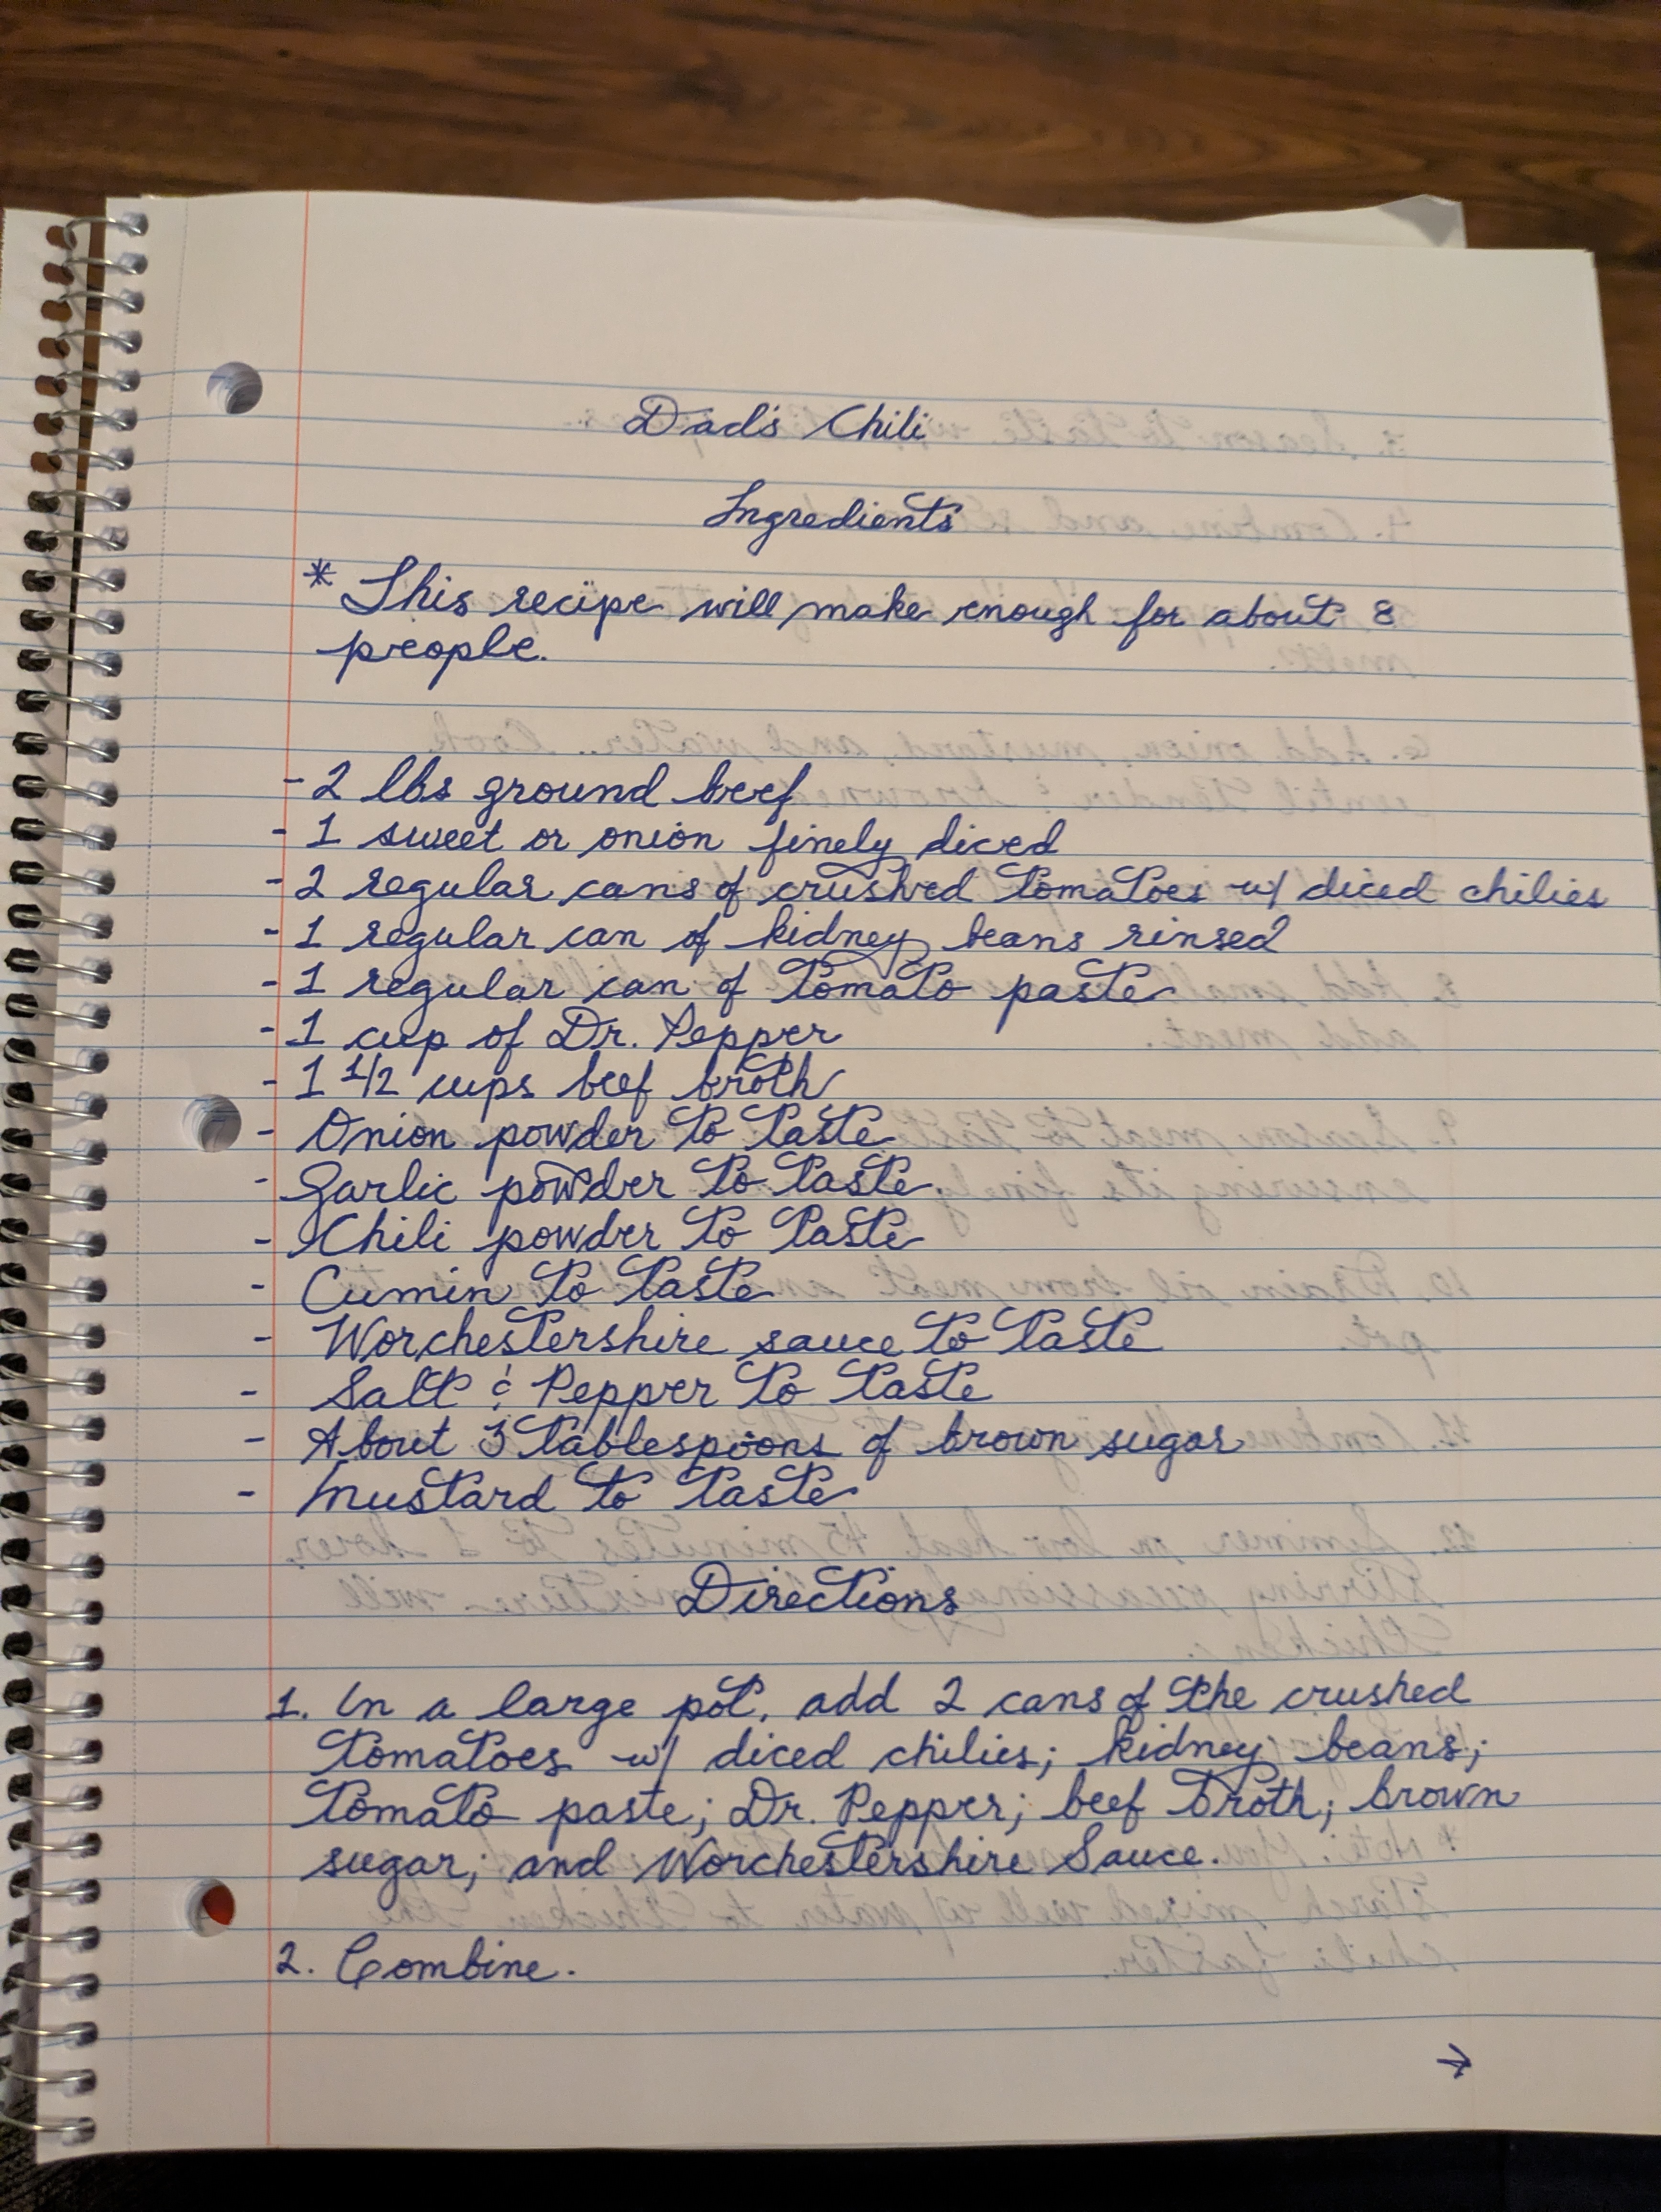 Dad's Chili
Ingredients
* This recipe will make enough for about 8
people.
- 2 lbs ground beef
- 1 sweet or onion finely diced
- 2 regular cans of crushed tomatoes w/ diced chilies
- 1 regular can of kidney beans rinsed
- 1 regular can of tomato paste
- 1 cup of Dr. Pepper
- 1 1/2 cups beef broth
- Onion powder to taste
- Garlic powder to taste
- Chili powder to taste
- Cumin to taste
- Worchestershire sauce to taste
- Salt & Pepper to taste
- About 3 tablespoons of brown sugar
- Mustard to taste
Directions
1. In a large pot, add 2 cans of the crushed
tomatoes w/ diced chilies; kidney beans;
tomato paste; Dr. Pepper; beef broth; brown
sugar; and Worchestershire Sauce.
2. Combine.
→